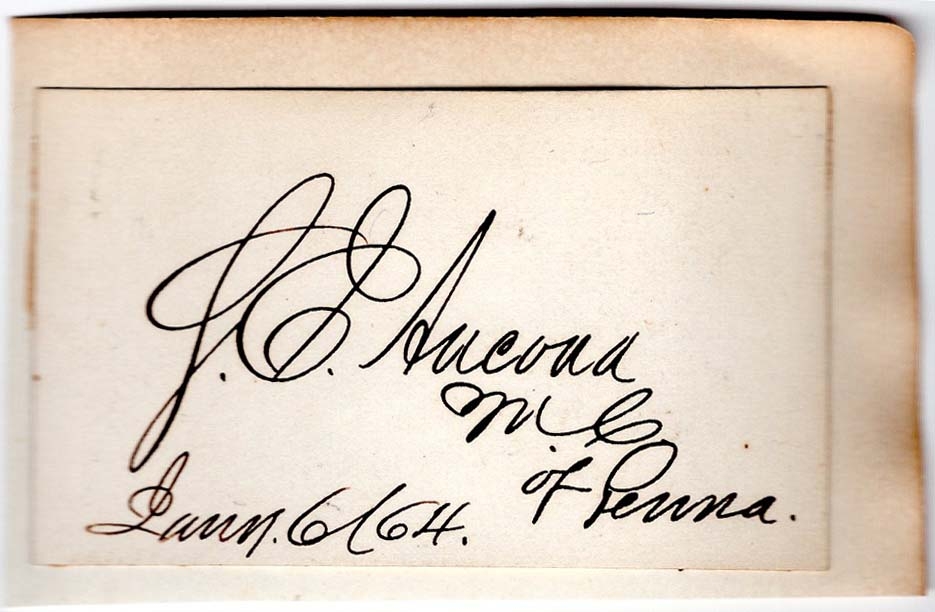 S. E. Ancona
M. C.
of Penna.
Jany. 6/64.